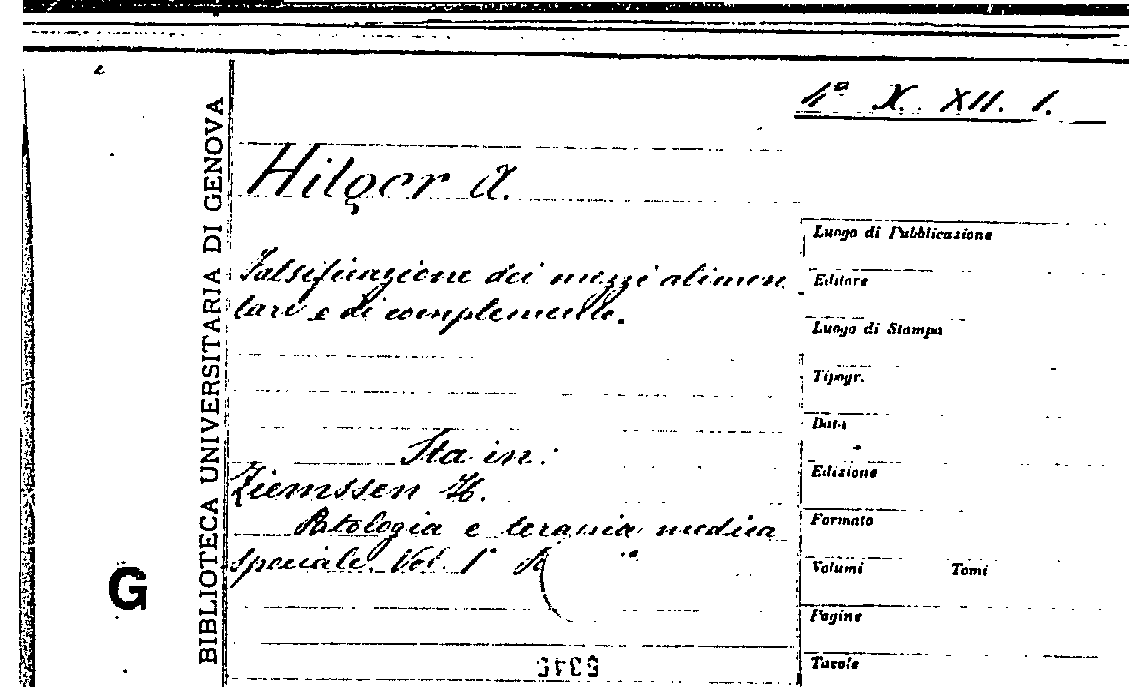 4ª X. XII. 1.
BIBLIOTECA UNIVERSITARIA DI GENOVA
Hilger A.
Falsificazione dei mezzi alimen
tari e di complemento.
Sta in:
Ziemssen H.
Patologia e terapia medica
speciale. Vol. 1°
G
Luogo di Pubblicazione
Editore
Luogo di Stampa
Tipogr.
Data
Edizione
Formato
Volumi Tomi
Pagine
Tavole